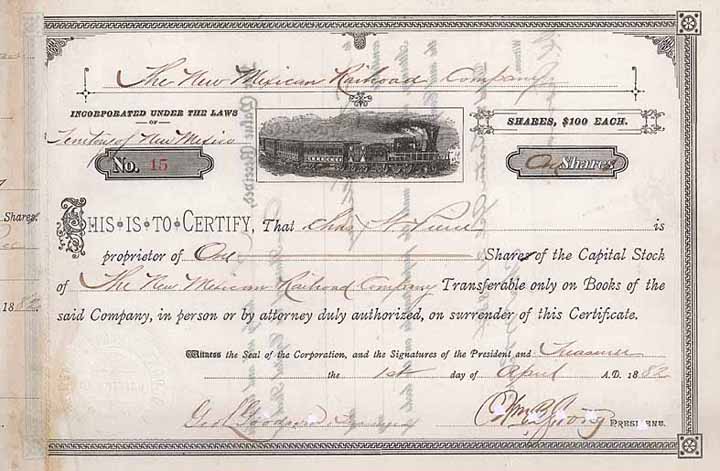 The New Mexican Railroad Company
INCORPORATED UNDER THE LAWS
OF
Territory of New Mexico
SHARES, $100 EACH.
No. 15
One Shares
THIS IS TO CERTIFY, That Chas W. is
proprietor of One Shares of the Capital Stock
of The New Mexican Railroad Company Transferable only on Books of the
said Company, in person or by attorney duly authorized, on surrender of this Certificate.
Witness the Seal of the Corporation, and the Signatures of the President and Treasurer
the 1st day of April A.D. 1882
Geo L Goodwin Wm B. Strong PRESIDENT.
Shares.
1882